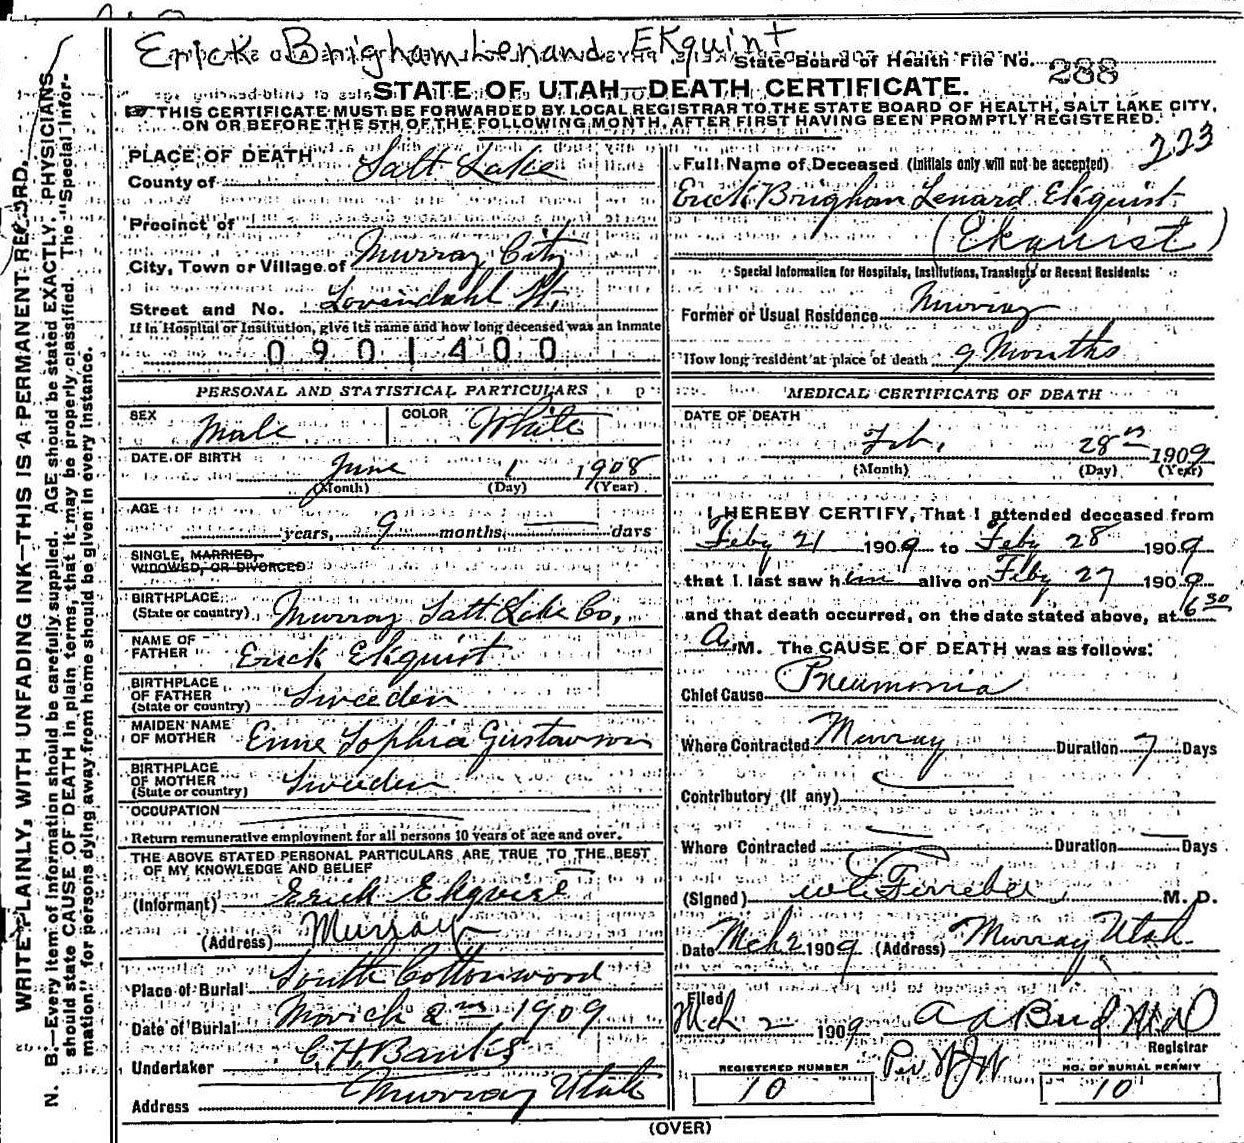 Erick Brigham Lenand Ekquint
State Board of Health File No. 288
STATE OF UTAH—DEATH CERTIFICATE.
THIS CERTIFICATE MUST BE FORWARDED BY LOCAL REGISTRAR TO THE STATE BOARD OF HEALTH, SALT LAKE CITY,
ON OR BEFORE THE 5TH OF THE FOLLOWING MONTH, AFTER FIRST HAVING BEEN PROMPTLY REGISTERED.
223
WRITE PLAINLY, WITH UNFADING INK—THIS IS A PERMANENT RECORD.
N. B.—Every item of information should be carefully supplied. AGE should be stated EXACTLY. PHYSICIANS
should state CAUSE OF DEATH in plain terms, that it may be properly classified. The "Special Infor-
mation" for persons dying away from home should be given in every instance.
PLACE OF DEATH
County of Salt Lake
Precinct of
City, Town or Village of Murray City
Street and No. Lovendahl St.
If in Hospital or Institution, give its name and how long deceased was an inmate
0901400
PERSONAL AND STATISTICAL PARTICULARS
SEX Male COLOR White
DATE OF BIRTH June 1 1908
(Month) (Day) (Year)
AGE
years, 9 months, — days
SINGLE, MARRIED,
WIDOWED, OR DIVORCED
BIRTHPLACE
(State or country) Murray Salt Lake Co,
NAME OF
FATHER Erick Ekquist
BIRTHPLACE
OF FATHER
(State or country) Sweeden
MAIDEN NAME
OF MOTHER Emme Sophia Gustawson
BIRTHPLACE
OF MOTHER
(State or country) Sweeden
OCCUPATION
Return remunerative employment for all persons 10 years of age and over.
THE ABOVE STATED PERSONAL PARTICULARS ARE TRUE TO THE BEST
OF MY KNOWLEDGE AND BELIEF
(Informant) Erick Ekquist
(Address) Murray
Place of Burial South Cottonwood
Date of Burial March 2nd 1909
Undertaker C. H. Banks
Address Murray Utah
Full Name of Deceased (Initials only will not be accepted)
Erick Brigham Lenard Ekquist
(Ekquist)
Special Information for Hospitals, Institutions, Transients or Recent Residents:
Former or Usual Residence Murray
How long resident at place of death 9 Months
MEDICAL CERTIFICATE OF DEATH
DATE OF DEATH
Feb, 28th 1909
(Month) (Day) (Year)
I HEREBY CERTIFY, That I attended deceased from
Feby 21 1909 to Feby 28 1909
that I last saw him alive on Feby 27 1909
and that death occurred, on the date stated above, at 6 30
A. M. The CAUSE OF DEATH was as follows:
Chief Cause Pneumonia
Where Contracted Murray Duration 7 Days
Contributory (If any)
Where Contracted — Duration — Days
(Signed) M. D.
Date Mch 2 1909 (Address) Murray Utah
Filed
Mch 2 1909
Registrar
REGISTERED NUMBER
10
NO. OF BURIAL PERMIT
10
(OVER)